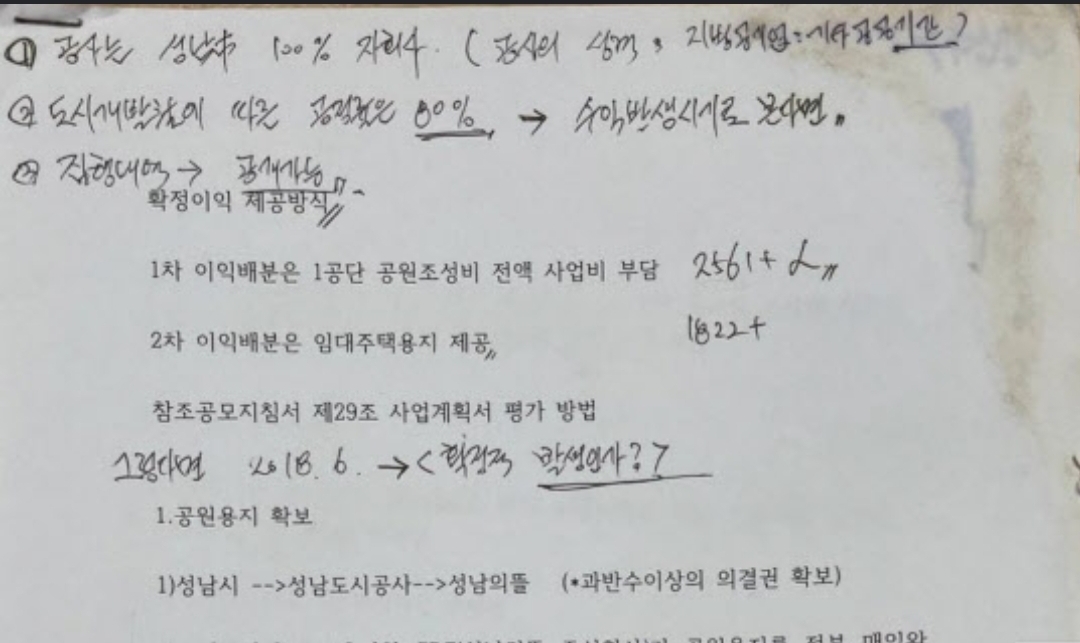 ① 공사는 성남市 100% 자회사. (공사의 성격,
② 도시개발법에 따른 공정률은 80% → 수익발생시기로 본다면,,
③ 집행내역 → 공개가능,,
확정이익 제공방식,,
1차 이익배분은 1공단 공원조성비 전액 사업비 부담 2561+α,,
2차 이익배분은 임대주택용지 제공,, 1822+
참조공모지침서 제29조 사업계획서 평가 방법
그렇다면 2018. 6. → < 확정적 발생인가?>
1.공원용지 확보
1)성남시 -->성남도시공사-->성남의뜰 (*과반수이상의 의결권 확보)